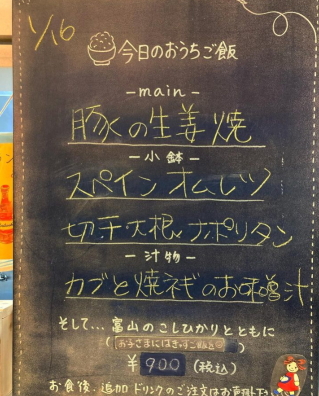 1/16
今日のおうちご飯
-main-
豚の生姜焼
-小鉢-
スペインオムレツ
切干大根ナポリタン
-汁物-
カブと焼ネギのお味噌汁
そして…富山のこしひかりとともに
¥900(税込)
お食後、追加ドリンクのご注文はお声掛け下さい